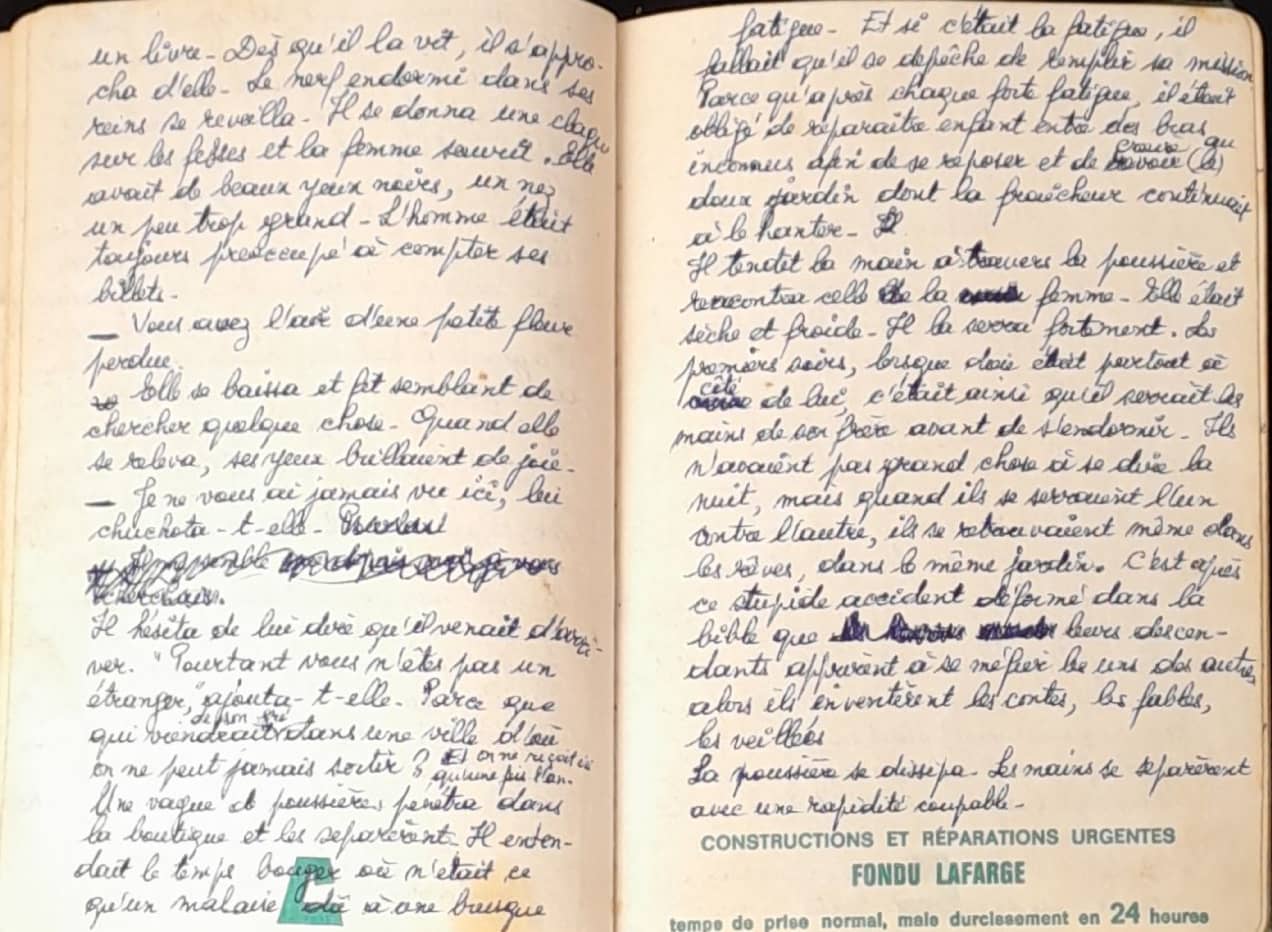 un livre - Dès qu'il la vit, il s'appro-
cha d'elle - Le nerf endormi dans ses
reins se reveilla - Il se donna une claque
sur les fesses et la femme sourit. Elle
avait de beaux yeux noirs, un nez
un peu trop grand - L'homme était
toujours préoccupé à compter ses
billets -
— Vous avez l'air d'une petite fleur
perdue.
Elle se baissa et fit semblant de
chercher quelque chose - Quand elle
se releva, ses yeux brillaient de joie -
— Je ne vous ai jamais vu ici, lui
chuchota-t-elle -
Il me semble vous
cherchais.
Il hésita de lui dire qu'il venait d'arri-
ver. "Pourtant vous n'êtes pas un
étranger," ajouta-t-elle - Parce que
de son gré
qui viendrait dans une ville d'où
on ne peut jamais sortir ? Et on ne reçoit ici
qu'une fois l'an.
Une vague de poussières pénétra dans
la boutique et les separèrent - Il enten-
dait le temps bouger où n'était ce
qu'un malaise dû à une brusque
fatigue - Et si c'était la fatigue, il
fallait qu'il se depêche de remplir sa mission
Parce qu'après chaque forte fatigue, il était
obligé de réparaître enfant entre des bras
inconnus afin de se reposer et de revoir (le)
doux jardin dont la fraîcheur continuait
à le hanter - Il
Il tendit la main à travers la poussière et
rencontra celle de la femme - Elle était
sèche et froide - Il la serra fortement. Les
premiers soirs, lorsque la était partout à
côté de lui, c'était ainsi qu'il serrait les
mains de son frère avant de s'endormir - Ils
n'avaient pas grand chose à se dire la
nuit, mais quand ils se serraient l'un
contre l'autre, ils se retrouvaient même dans
les rêves, dans le même jardin. C'est après
ce stupide accident déformé dans la
bible que leurs descen-
dants apprirent à se méfier les uns des autres
alors ils inventèrent les contes, les fables,
les veillées
La poussière se dissipa - Les mains se séparèrent
avec une rapidité coupable -
CONSTRUCTIONS ET RÉPARATIONS URGENTES
FONDU LAFARGE
temps de prise normal, mais durcissement en 24 heures